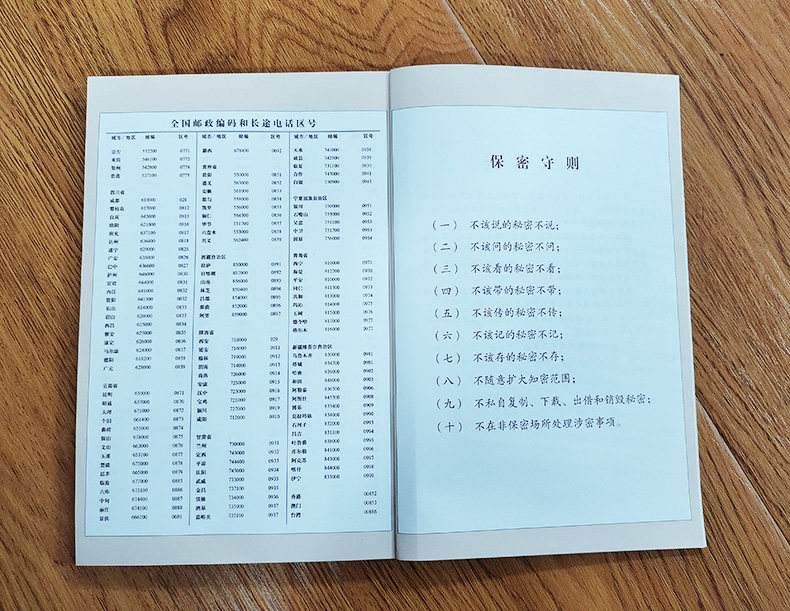 全国邮政编码和长途电话区号
城市/地区 邮编 区号
崇左 532200 0771
来宾 546100 0772
贺州 542800 0774
贵港 537100 0775
四川省
成都 610000 028
攀枝花 617000 0812
自贡 643000 0813
绵阳 621000 0816
南充 637100 0817
达州 636400 0818
遂宁 629000 0825
广安 0826
巴中 636600 0827
泸州 646000 0830
宜宾 644000 0831
内江 641000 0832
资阳 641300 0832
乐山 614000 0833
眉山 620000 0833
西昌 615000 0834
雅安 625000 0835
康定 626000 0836
马尔康 624000 0837
德阳 618200 0838
广元 628000 0839
云南省
昆明 650000 0871
昭通 657000 0870
大理 671000 0872
个旧 661400 0873
曲靖 655000 0874
保山 678000 0875
文山 663000 0876
玉溪 653100 0877
楚雄 675000 0878
思茅 665000 0879
临沧 677000 0883
六库 673100 0886
中甸 674400 0887
丽江 674100 0888
景洪 666100 0691
城市/地区 邮编 区号
潞西 678400 0692
贵州省
贵阳 550000 0851
遵义 563000 0852
安顺 561000 0853
都匀 558000 0854
凯里 556000 0855
铜仁 554300 0856
毕节 551700 0857
六盘水 553000 0858
兴义 562400 0859
西藏自治区
拉萨 850000 0891
日喀则 857000 0892
山南 856000 0893
林芝 0894
昌都 854000 0895
那曲 852000 0896
阿里 859000 0897
陕西省
西安 710000 029
延安 716000 0911
榆林 719000 0912
渭南 714000 0913
商洛 726000 0914
安康 725000 0915
汉中 723000 0916
宝鸡 721000 0917
铜川 727000 0919
咸阳 712000 0910
甘肃省
兰州 730000 0931
定西 743000 0932
平凉 744000 0933
庆阳 745000 0934
武威 733000 0935
金昌 737100 0935
张掖 734000 0936
酒泉 735000 0937
嘉峪关 735100 0937
城市/地区 邮编 区号
天水 741000 0938
成县 742500 0939
临夏 731100 0930
合作 747000 0941
白银 730900 0943
宁夏回族自治区
银川 750000 0951
石嘴山 753000 0952
吴忠 751100 0953
中卫 751700 0953
固原 756000 0954
青海省
西宁 810000 0971
海晏 812200 0970
平安 810600 0972
同仁 811300 0973
共和 813000 0974
玛沁 814000 0975
玉树 815000 0976
德令哈 817000 0977
格尔木 816000 0977
新疆维吾尔自治区
乌鲁木齐 830000 0991
塔城 834700 0901
哈密 839000 0902
和田 848000 0903
阿勒泰 836500 0906
阿图什 845300 0908
博乐 833400 0909
克拉玛依 834000 0990
石河子 832000 0993
昌吉 831100 0994
吐鲁番 838000 0995
库尔勒 841000 0996
阿克苏 843000 0997
喀什 844000 0998
伊宁 835000 0999
香港 00852
澳门 00853
台湾 00886
保密守则
(一) 不该说的秘密不说;
(二) 不该问的秘密不问;
(三) 不该看的秘密不看;
(四) 不该带的秘密不带;
(五) 不该传的秘密不传;
(六) 不该记的秘密不记;
(七) 不该存的秘密不存;
(八) 不随意扩大知密范围;
(九) 不私自复制、下载、出借和销毁秘密;
(十) 不在非保密场所处理涉密事项。